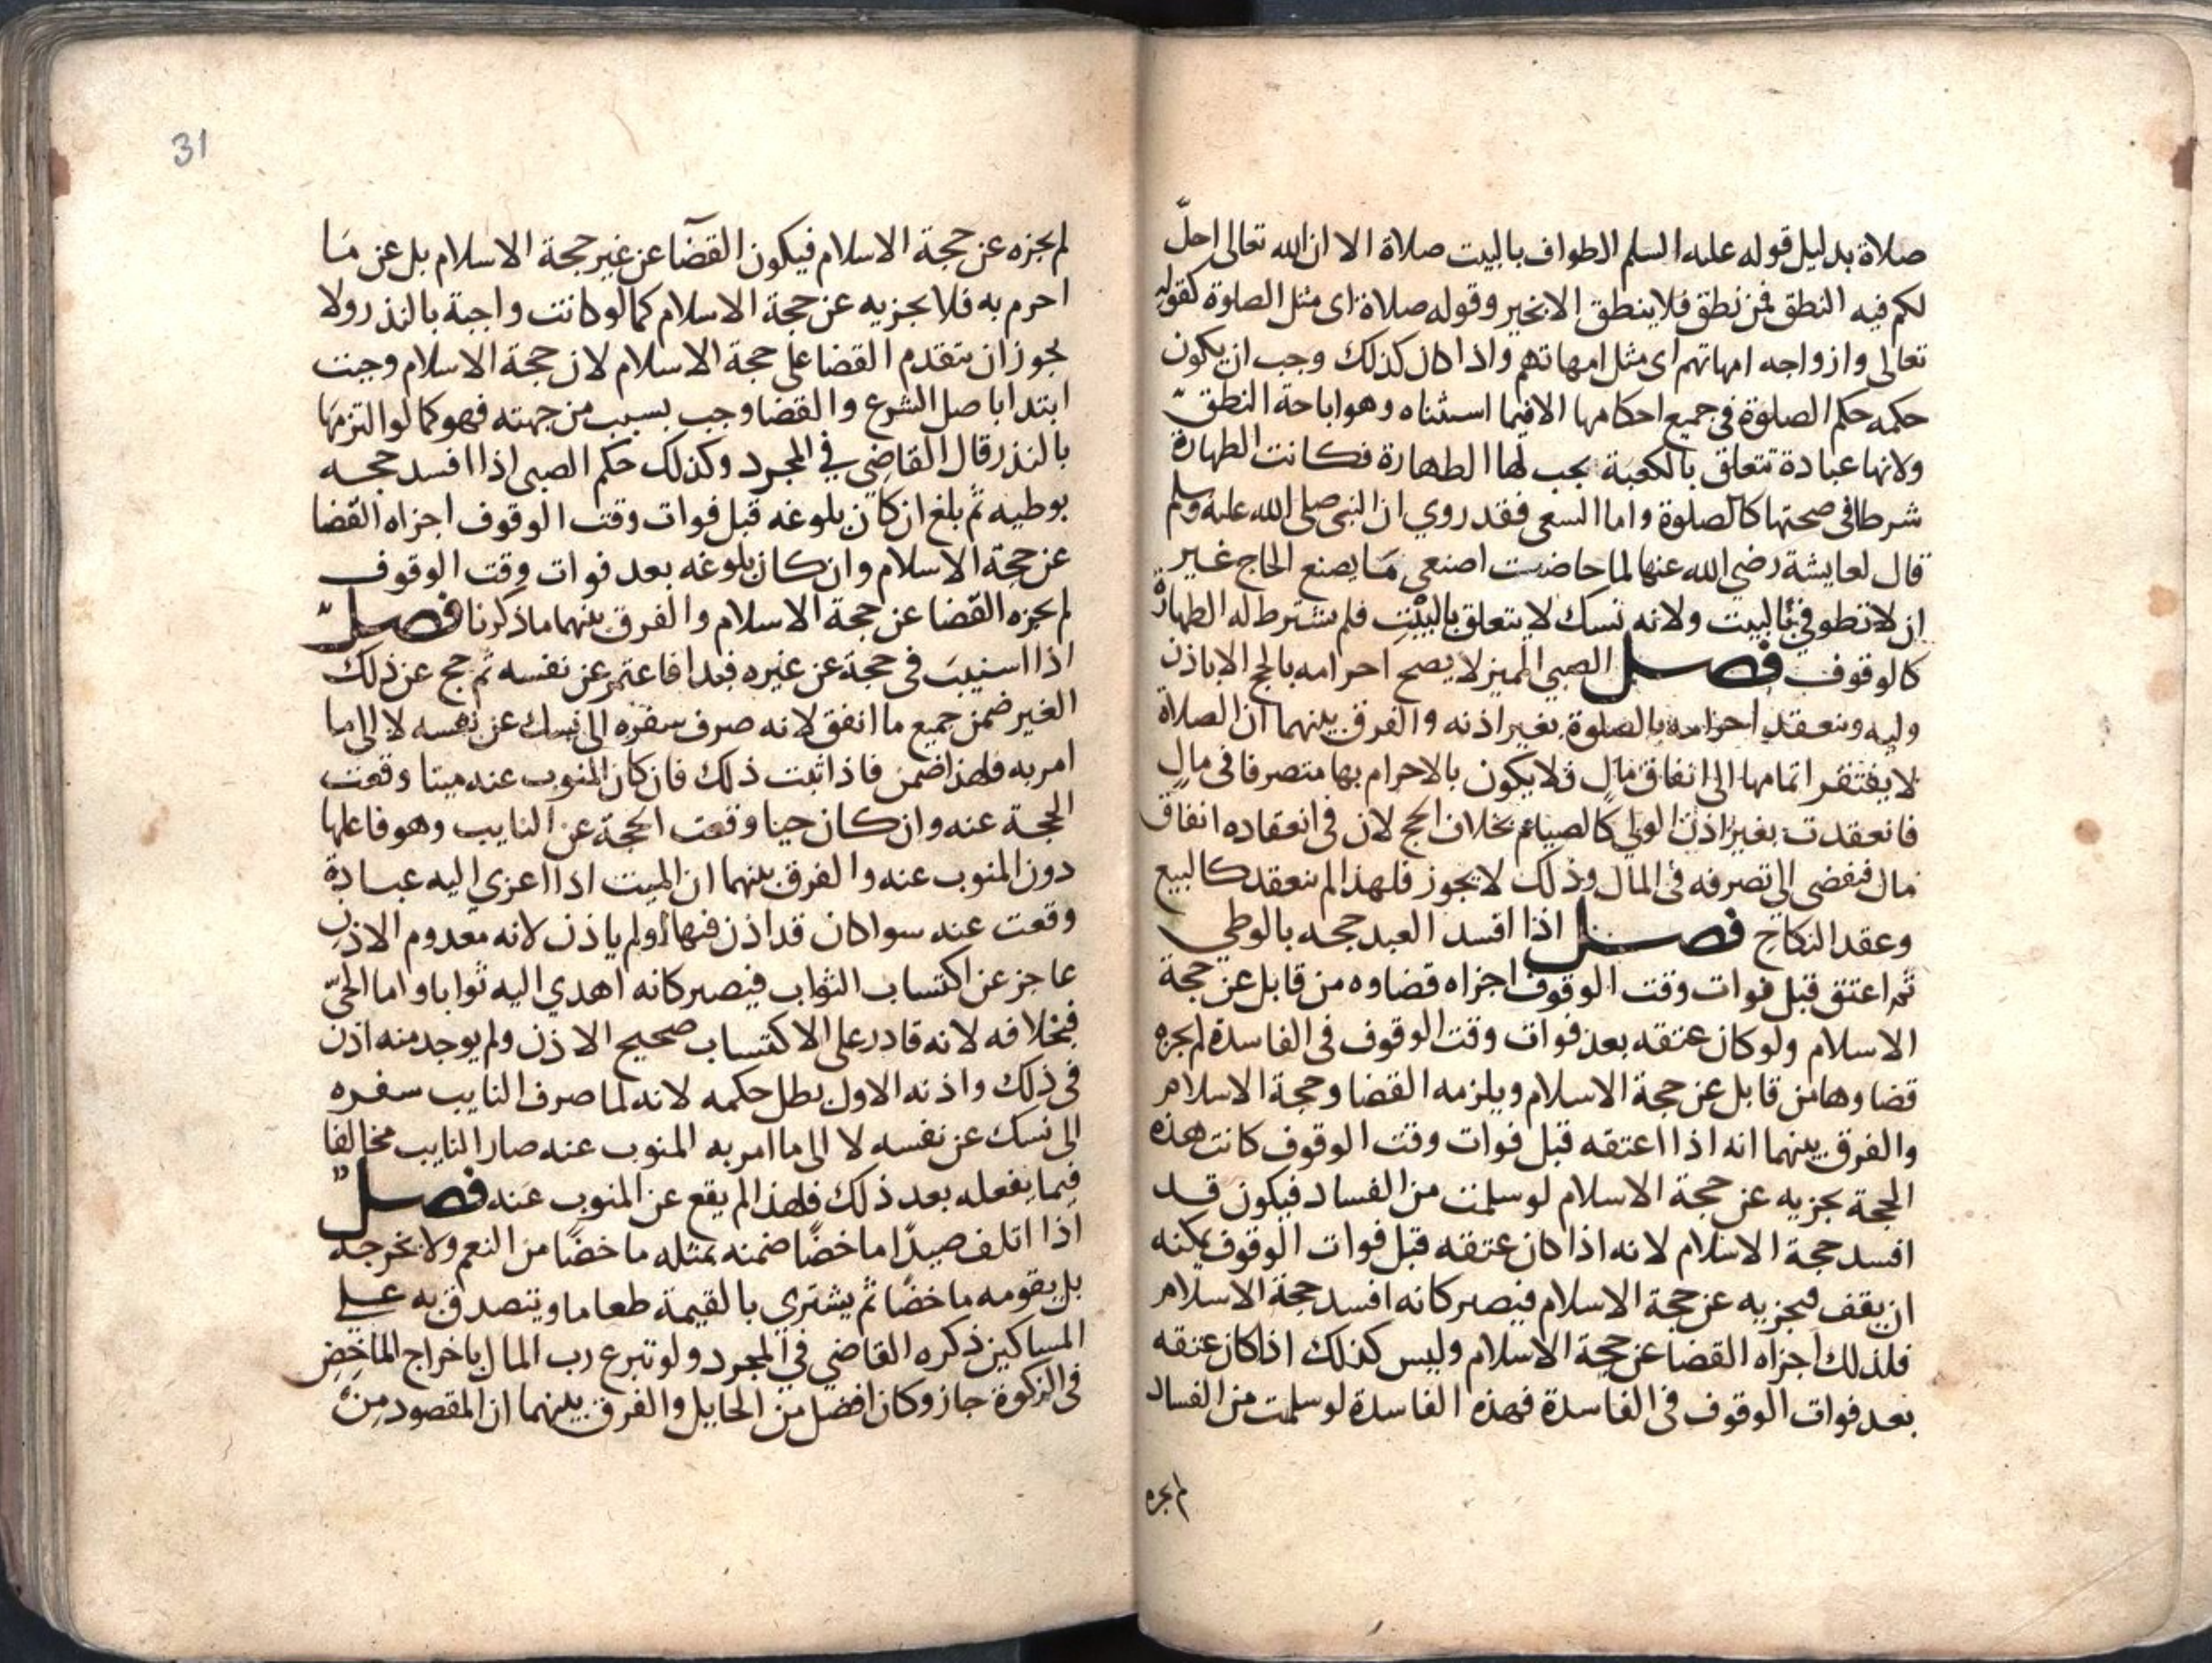 صلاة بدليل قوله عليه السلم الطواف بالبيت صلاة الا ان الله تعالى احلّ
لكم فيه النطق فمن نطق فلا ينطق الا بخير وقوله صلاة اى مثل الصلوة كقوله
تعالى وازواجه امهاتهم اى مثل امهاتهم واذا كان كذلك وجب ان يكون
حكمه حكم الصلوة في جميع احكامها الا فيما استثناه وهو اباحة النطق
ولانها عبادة تتعلق بالكعبة يجب لها الطهارة فكانت الطهارة
شرطا في صحتها كالصلوة واما السعى فقد روي ان النبى صلى الله عليه وسلم
قال لعايشة رضي الله عنها لما حاضت اصنعى مَا يصنع الحاج غير
ان لا تطوفي بالبيت ولانه نسك لا يتعلق بالبيت فلم يشترط له الطهارة
كالوقوف فصل الصبي المميز لا يصح احرامه بالحج الا باذن
وليه وينعقد احرامه بالصلوة بغير اذنه والفرق بينهما ان الصلاة
لا يفتقر اتمامها الى انفاق مال فلا يكون بالاحرام بها متصرفا في مال
فانعقدت بغير اذن الولي كالصيام بخلاف الحج لان في انعقاده انفاق
مال فيفضى الى تصرفه في المال وذلك لا يجوز فلهذا لم ينعقد كالبيع
وعقد النكاح فصل اذا افسد العبد حجه بالوطي
ثم اعتق قبل فوات وقت الوقوف اجزاه قضاوه من قابل عن حجة
الاسلام ولو كان عتقه بعد فوات وقت الوقوف في الفاسدة لم يجزه
قضاوها من قابل عن حجة الاسلام ويلزمه القضا وحجة الاسلام
والفرق بينهما انه اذا اعتقه قبل فوات وقت الوقوف كانت هذه
الحجة يجزيه عن حجة الاسلام لو سلمت من الفساد فيكون قد
افسد حجة الاسلام لانه اذا كان عتقه قبل فوات الوقوف يمكنه
ان يقف فيجزيه عن حجة الاسلام فيصير كانه افسد حجة الاسلام
فلذلك اجزاه القضا عن حجة الاسلام وليس كذلك اذا كان عتقه
بعد فوات الوقوف في الفاسدة فهذه الفاسدة لو سلمت من الفساد
لم يجزه
31
لم يجزه عن حجة الاسلام فيكون القضآ عن غير حجة الاسلام بل عن مَا
احرم به فلا يجزيه عن حجة الاسلام كما لو كانت واجبة بالنذر ولا
يجوز ان يتقدم القضا على حجة الاسلام لان حجة الاسلام وجبت
ابتدا باصل الشرع والقضا وجب بسبب من جهته فهو كما لو التزمها
بالنذر قال القاضي في المجرد وكذلك حكم الصبى اذا افسد حجه
بوطيه ثم بلغ ان كان بلوغه قبل فوات وقت الوقوف اجزاه القضا
عن حجة الاسلام وان كان بلوغه بعد فوات وقت الوقوف
لم يجزه القضا عن حجة الاسلام والفرق بينهما ما ذكرنا فصل
اذا استنيبَ في حجة عن غيره فبدا فاعتمر عن نفسه ثم حج عن ذلك
الغير ضمن جميع ما انفق لانه صرف سفره الى نسك عن نفسه لا الى ما
امر به فلهذا ضمن فاذا ثبت ذلك فان كان المنوب عنه ميتا وقعت
الحجة عنه وان كان حيا وقعت الحجة عن النايب وهو فاعلها
دون المنوب عنه والفرق بينهما ان الميت اذا اعزي اليه عبادة
وقعت عنه سوا كان قد اذن فيها او لم ياذن لانه معدوم الاذن
عاجز عن اكتساب الثواب فيصير كانه اهدي اليه ثوابا واما الحيّ
فبخلافه لانه قادر على الاكتساب صحيح الاذن ولم يوجد منه اذن
في ذلك واذنه الاول بطل حكمه لانه لما صرف النايب سفره
الى نسك عن نفسه لا الى ما امر به المنوب عنه صار النايب مخالفا
فيما يفعله بعد ذلك فلهذا لم يقع عن المنوب عنه فصل
اذا اتلف صيدًا ماخضًا ضمنه بمثله ماخضًا من النعم ولا يخرجه
بل يقومه ماخضًا ثم يشترى بالقيمة طعاما ويتصدق به على
المساكين ذكره القاضي في المجرد ولو تبرع رب المال باخراج الماخض
في الزكوة جاز وكان افضل من الحايل والفرق بينهما ان المقصود مِنْه